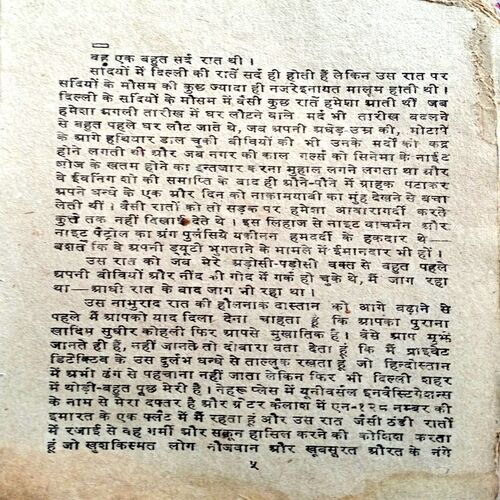 वह एक बहुत सर्द रात थी ।
सर्दियों में दिल्ली की रातें सर्द ही होती हैं लेकिन उस रात पर
सर्दियों के मौसम की कुछ ज्यादा ही नजरेइनायत मालूम होती थी ।
दिल्ली के सर्दियों के मौसम में वैसी कुछ रातें हमेशा आती थीं जब
हमेशा अगली तारीख में घर लौटने वाले मर्द भी तारीख बदलने
से बहुत पहले घर लौट जाते थे, जब अपनी अधेड़-उम्र की, मोटापे
के आगे हथियार डाल चुकी बीवियों की भी उनके मर्दों को कद्र
होने लगती थी और जब नगर की काल गर्ल्स को सिनेमा के नाईट
शोज के खतम होने का इन्तजार करना मुहाल लगने लगता था और
वे ईवनिंग शो की समाप्ति के बाद ही औने-पौने में ग्राहक पटाकर
अपने धन्धे के एक और दिन को नाकामयाबी का मुंह देखने से बचा
लेती थीं । वैसी रातों को तो सड़क पर हमेशा आवारागर्दी करते
कुत्ते तक नहीं दिखाई देते थे । इस लिहाज से नाइट वाचमैन और
नाइट पैट्रोल का अंग पुलसिये यकीनन हमदर्दी के हकदार थे—
बशर्ते कि वे अपनी ड्यूटी भुगताने के मामले में ईमानदार भी हों ।
उस रात को जब मेरे अड़ोसी-पड़ोसी वक्त से बहुत पहले
अपनी बीवियों और नींद की गोद में गर्क हो चुके थे, मैं जाग रहा
था—आधी रात के बाद जाग भी रहा था ।
उस नामुराद रात की हौलनाक दास्तान को आगे बढ़ाने से
पहले मैं आपको याद दिला देना चाहता हूं कि आपका पुराना
खादिम सुधीर कोहली फिर आपसे मुखातिब है । वैसे आप मुझे
जानते ही हैं, नहीं जानते तो दोबारा बता देता हूं कि मैं प्राइवेट
डिटेक्टिव के उस दुर्लभ धन्धे से ताल्लुक रखता हूं जो हिन्दोस्तान
में अभी ढंग से पहचाना नहीं जाता लेकिन फिर भी दिल्ली शहर
में थोड़ी-बहुत पूछ मेरी है । नेहरू प्लेस में यूनीवर्सल इनवैस्टिगेशन्स
के नाम से मेरा दफ्तर है और ग्रेटर कैलाश में एन-१२८ नम्बर की
इमारत के एक फ्लैट में मैं रहता हूं और उस रात जैसी ठंडी रातों
में रजाई से वह गर्मी और सकून हासिल करने की कोशिश करता
हूं जो खुशकिस्मत लोग नौजवान और खूबसूरत औरत के नंगे
५